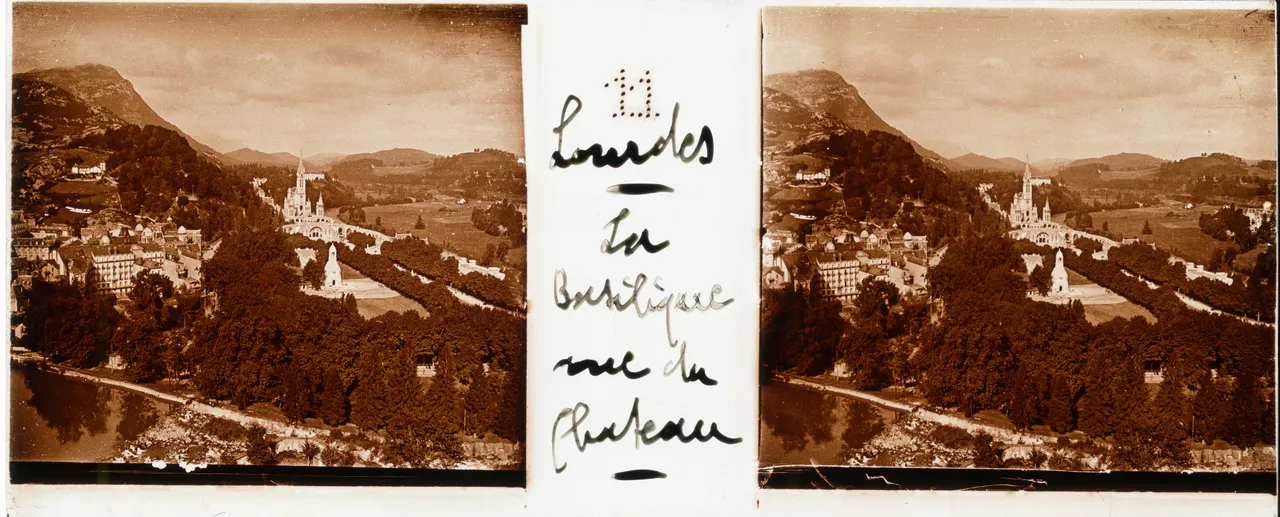 11
Lourdes
La
Basilique
vue du
Chateau